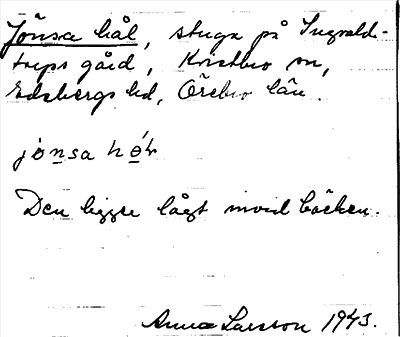 Jönsa hål, stuga på Ingvalds-
torps gård, Kvistbro sn,
Edsbergs hd, Örebro län.
jònsa hól
Den ligger lågt invid bäcken.
Anna Larsson 1943.